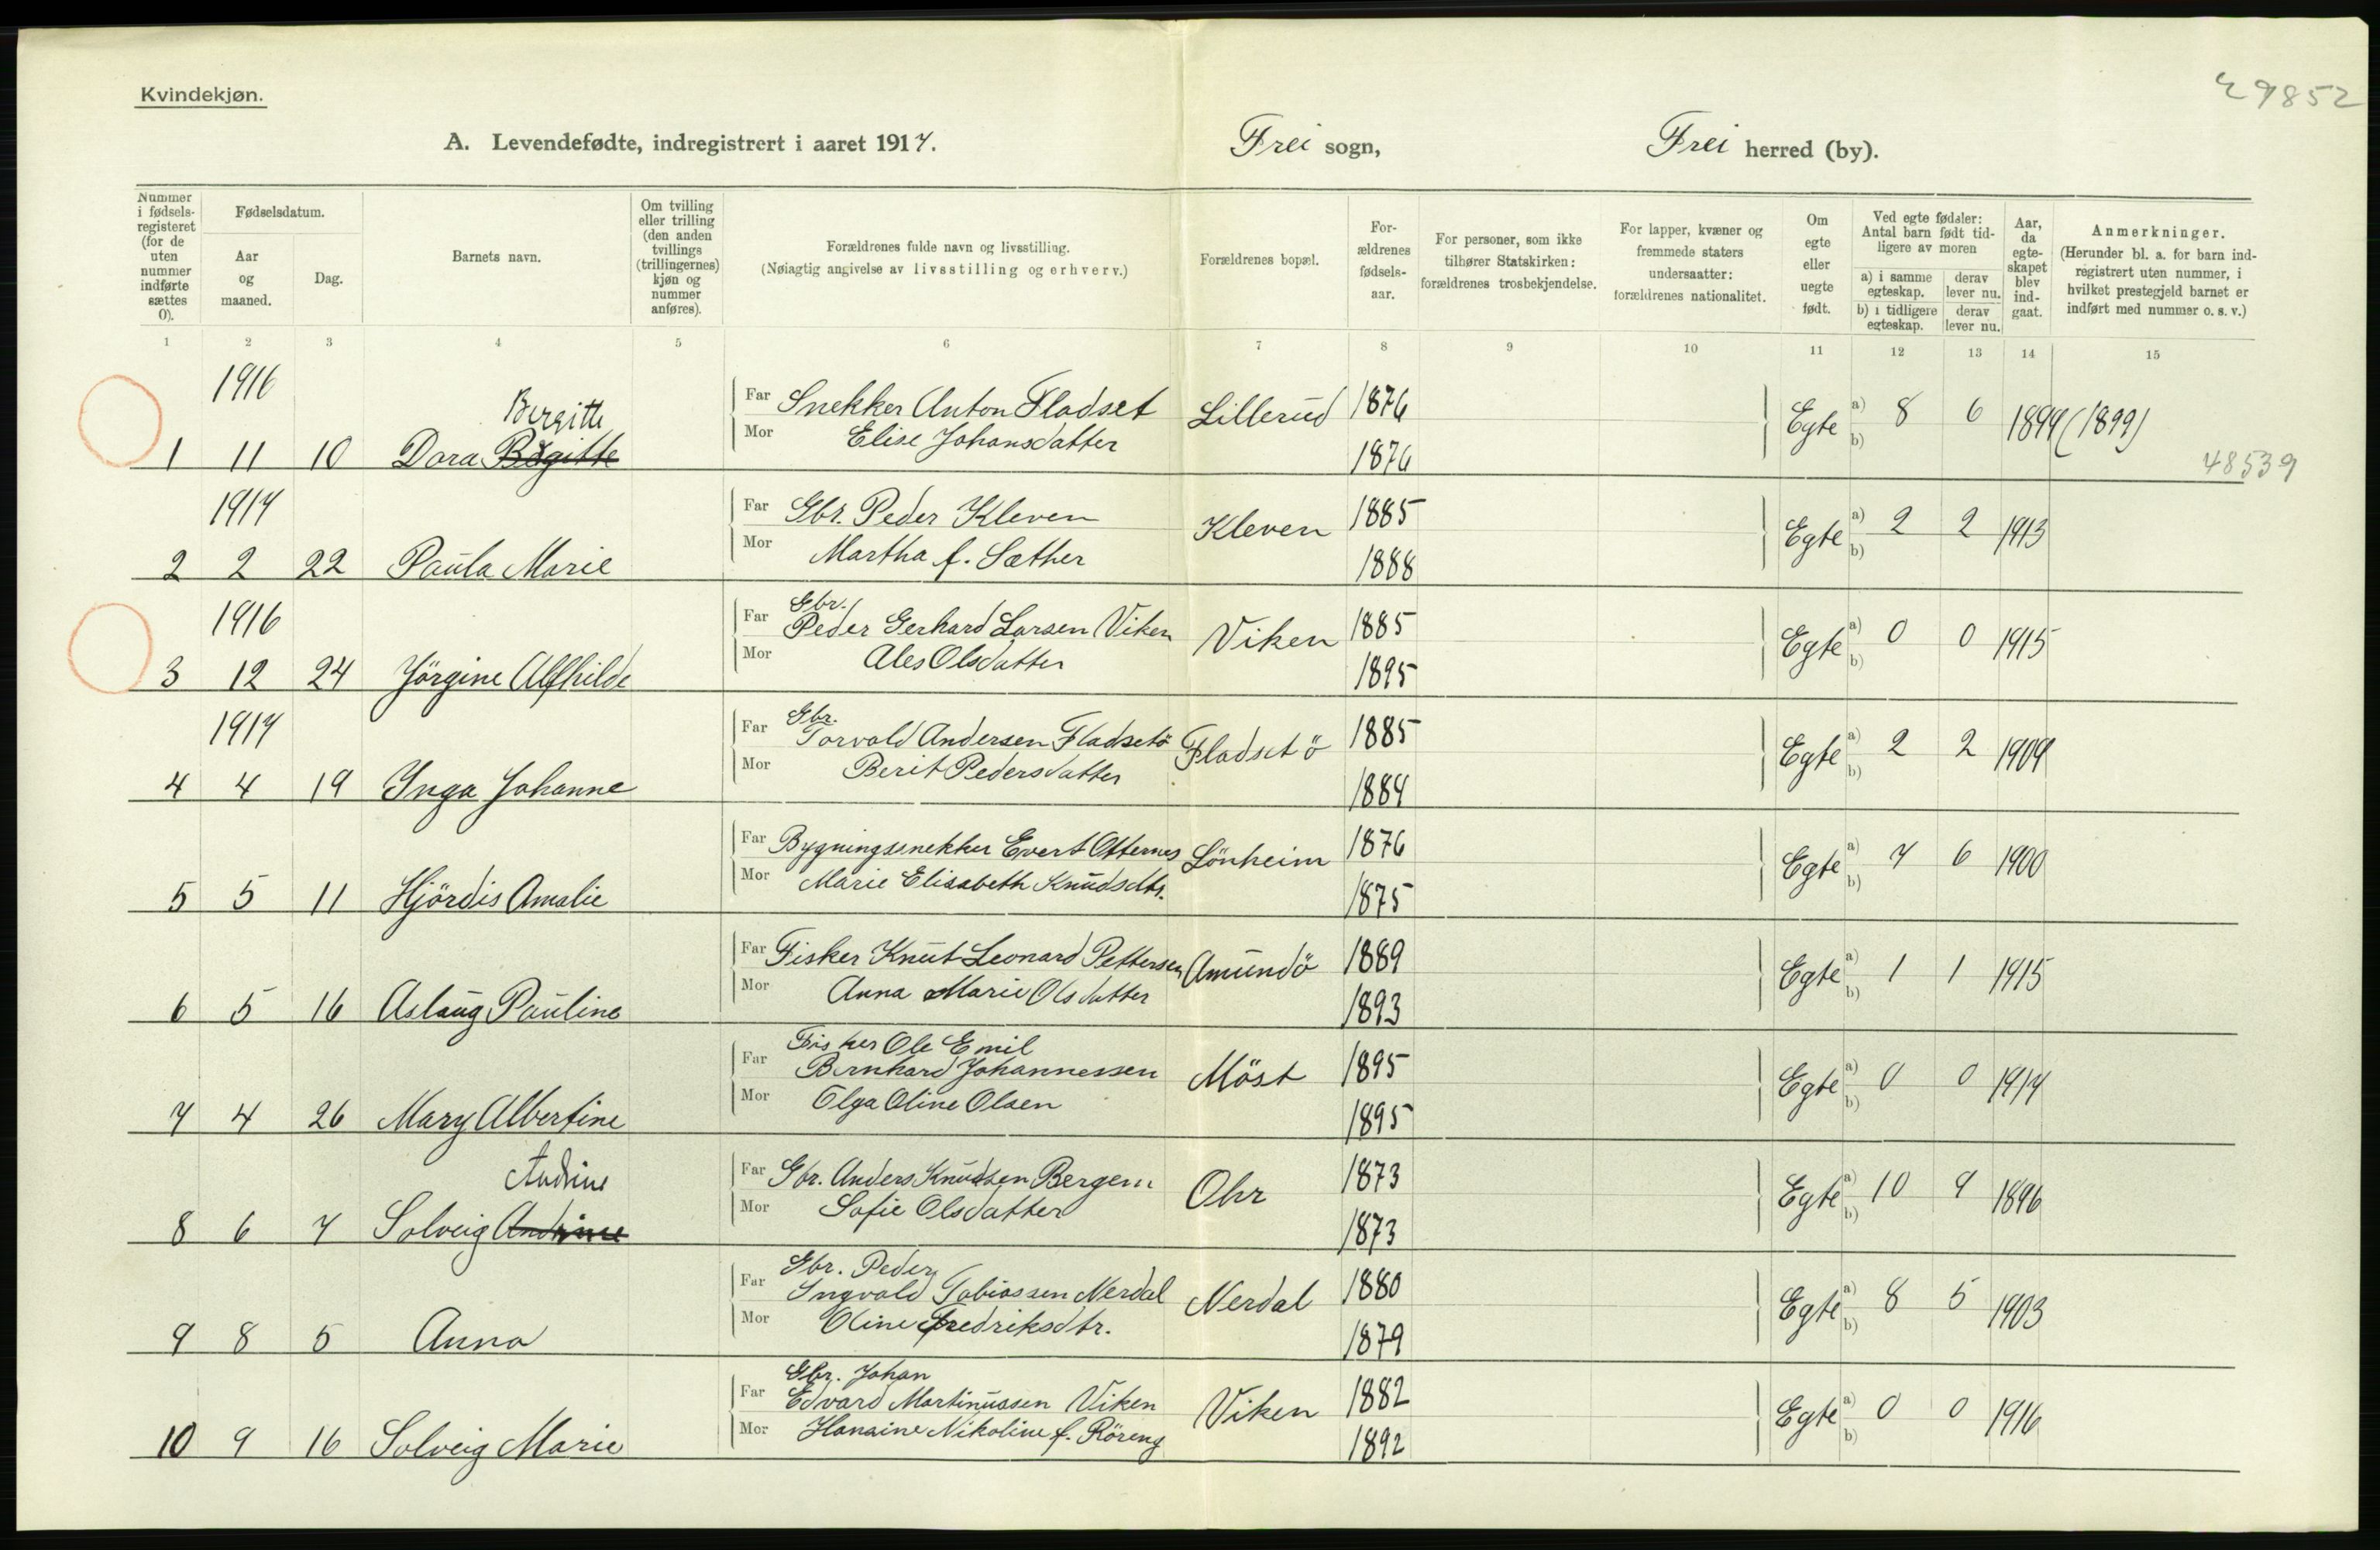 Kvindekjøn.
29852
A. Levendefødte, indregistrert i aaret 1917. Frei sogn, Frei herred (by).
Nummer i fødsels-registeret (for de uten nummer indførte sættes 0).
Fødselsdatum.
Aar og maaned.
Dag.
Barnets navn.
Om tvilling eller trilling (den anden tvillings (trillingernes) kjøn og nummer anføres).
Forældrenes fulde navn og livsstilling.
(Nøiagtig angivelse av livsstilling og erhverv.)
Forældrenes bopæl.
For-ældrenes fødsels-aar.
For personer, som ikke tilhører Statskirken: forældrenes trosbekjendelse.
For lapper, kvæner og fremmede staters undersaatter: forældrenes nationalitet.
Om egte eller uegte født.
Ved egte fødsler: Antal barn født tid-ligere av moren
a) i samme egteskap. derav lever nu.
b) i tidligere egteskap. derav lever nu.
Aar, da egte-skapet blev ind-gaat.
Anmerkninger.
(Herunder bl. a. for barn ind-registrert uten nummer, i hvilket prestegjeld barnet er indført med nummer o. s. v.)
1 2 3 4 5 6 7 8 9 10 11 12 13 14 15
1916
Bergitte
Far Snekker Anton Fladset Lillerud 1876 Egte a) 8 6 1899 (1899)
Mor Elise Johansdatter b)
1 11 10 Dora Birgitte 1876
48539
1917
Far Gbr. Peder Kleven Kleven 1885 Egte a) 2 2 1913
Mor Martha f. Sæther b)
2 2 22 Paula Marie 1888
1916
Gbr.
Far Peder Gerhard Larsen Viken Viken 1885 Egte a) 0 0 1915
Mor Ales Olsdatter b)
3 12 24 Jörgine Alfhilde 1895
1917
Gbr.
Far Torvald Andersen Fladsetö Fladsetö 1885 Egte a) 2 2 1909
Mor Berit Pedersdatter b)
4 4 19 Inga Johanne 1884
Far Bygningssnekker Evert Otternes Lönheim 1876 Egte a) 7 6 1900
Mor Marie Elisabeth Knudsdtr. b)
5 5 11 Hjördis Amalie 1875
Far Fisker Knut Leonard Pettersen Amundö 1889 Egte a) 1 1 1915
Mor Anna Marie Olsdatter b)
6 5 16 Aslaug Pauline 1893
Fisker Ole Emil
Far Bernhard Johannessen Möst 1895 Egte a) 0 0 1917
Mor Olga Oline Olsen b)
7 4 26 Mary Albertine 1895
Andrine
Far Gbr. Anders Knudsen Bergem Ohr 1873 Egte a) 10 9 1896
Mor Sofie Olsdatter b)
8 6 7 Solveig Andrine 1873
Gbr. Peder
Far Ingvald Tobiassen Nerdal Nerdal 1880 Egte a) 8 5 1903
Mor Oline Fredriksdtr. b)
9 8 5 Anna 1879
Gbr. Johan
Far Edvard Martinussen Viken Viken 1882 Egte a) 0 0 1916
Mor Hanaine Nikoline f. Röreng b)
10 9 16 Solveig Marie 1892